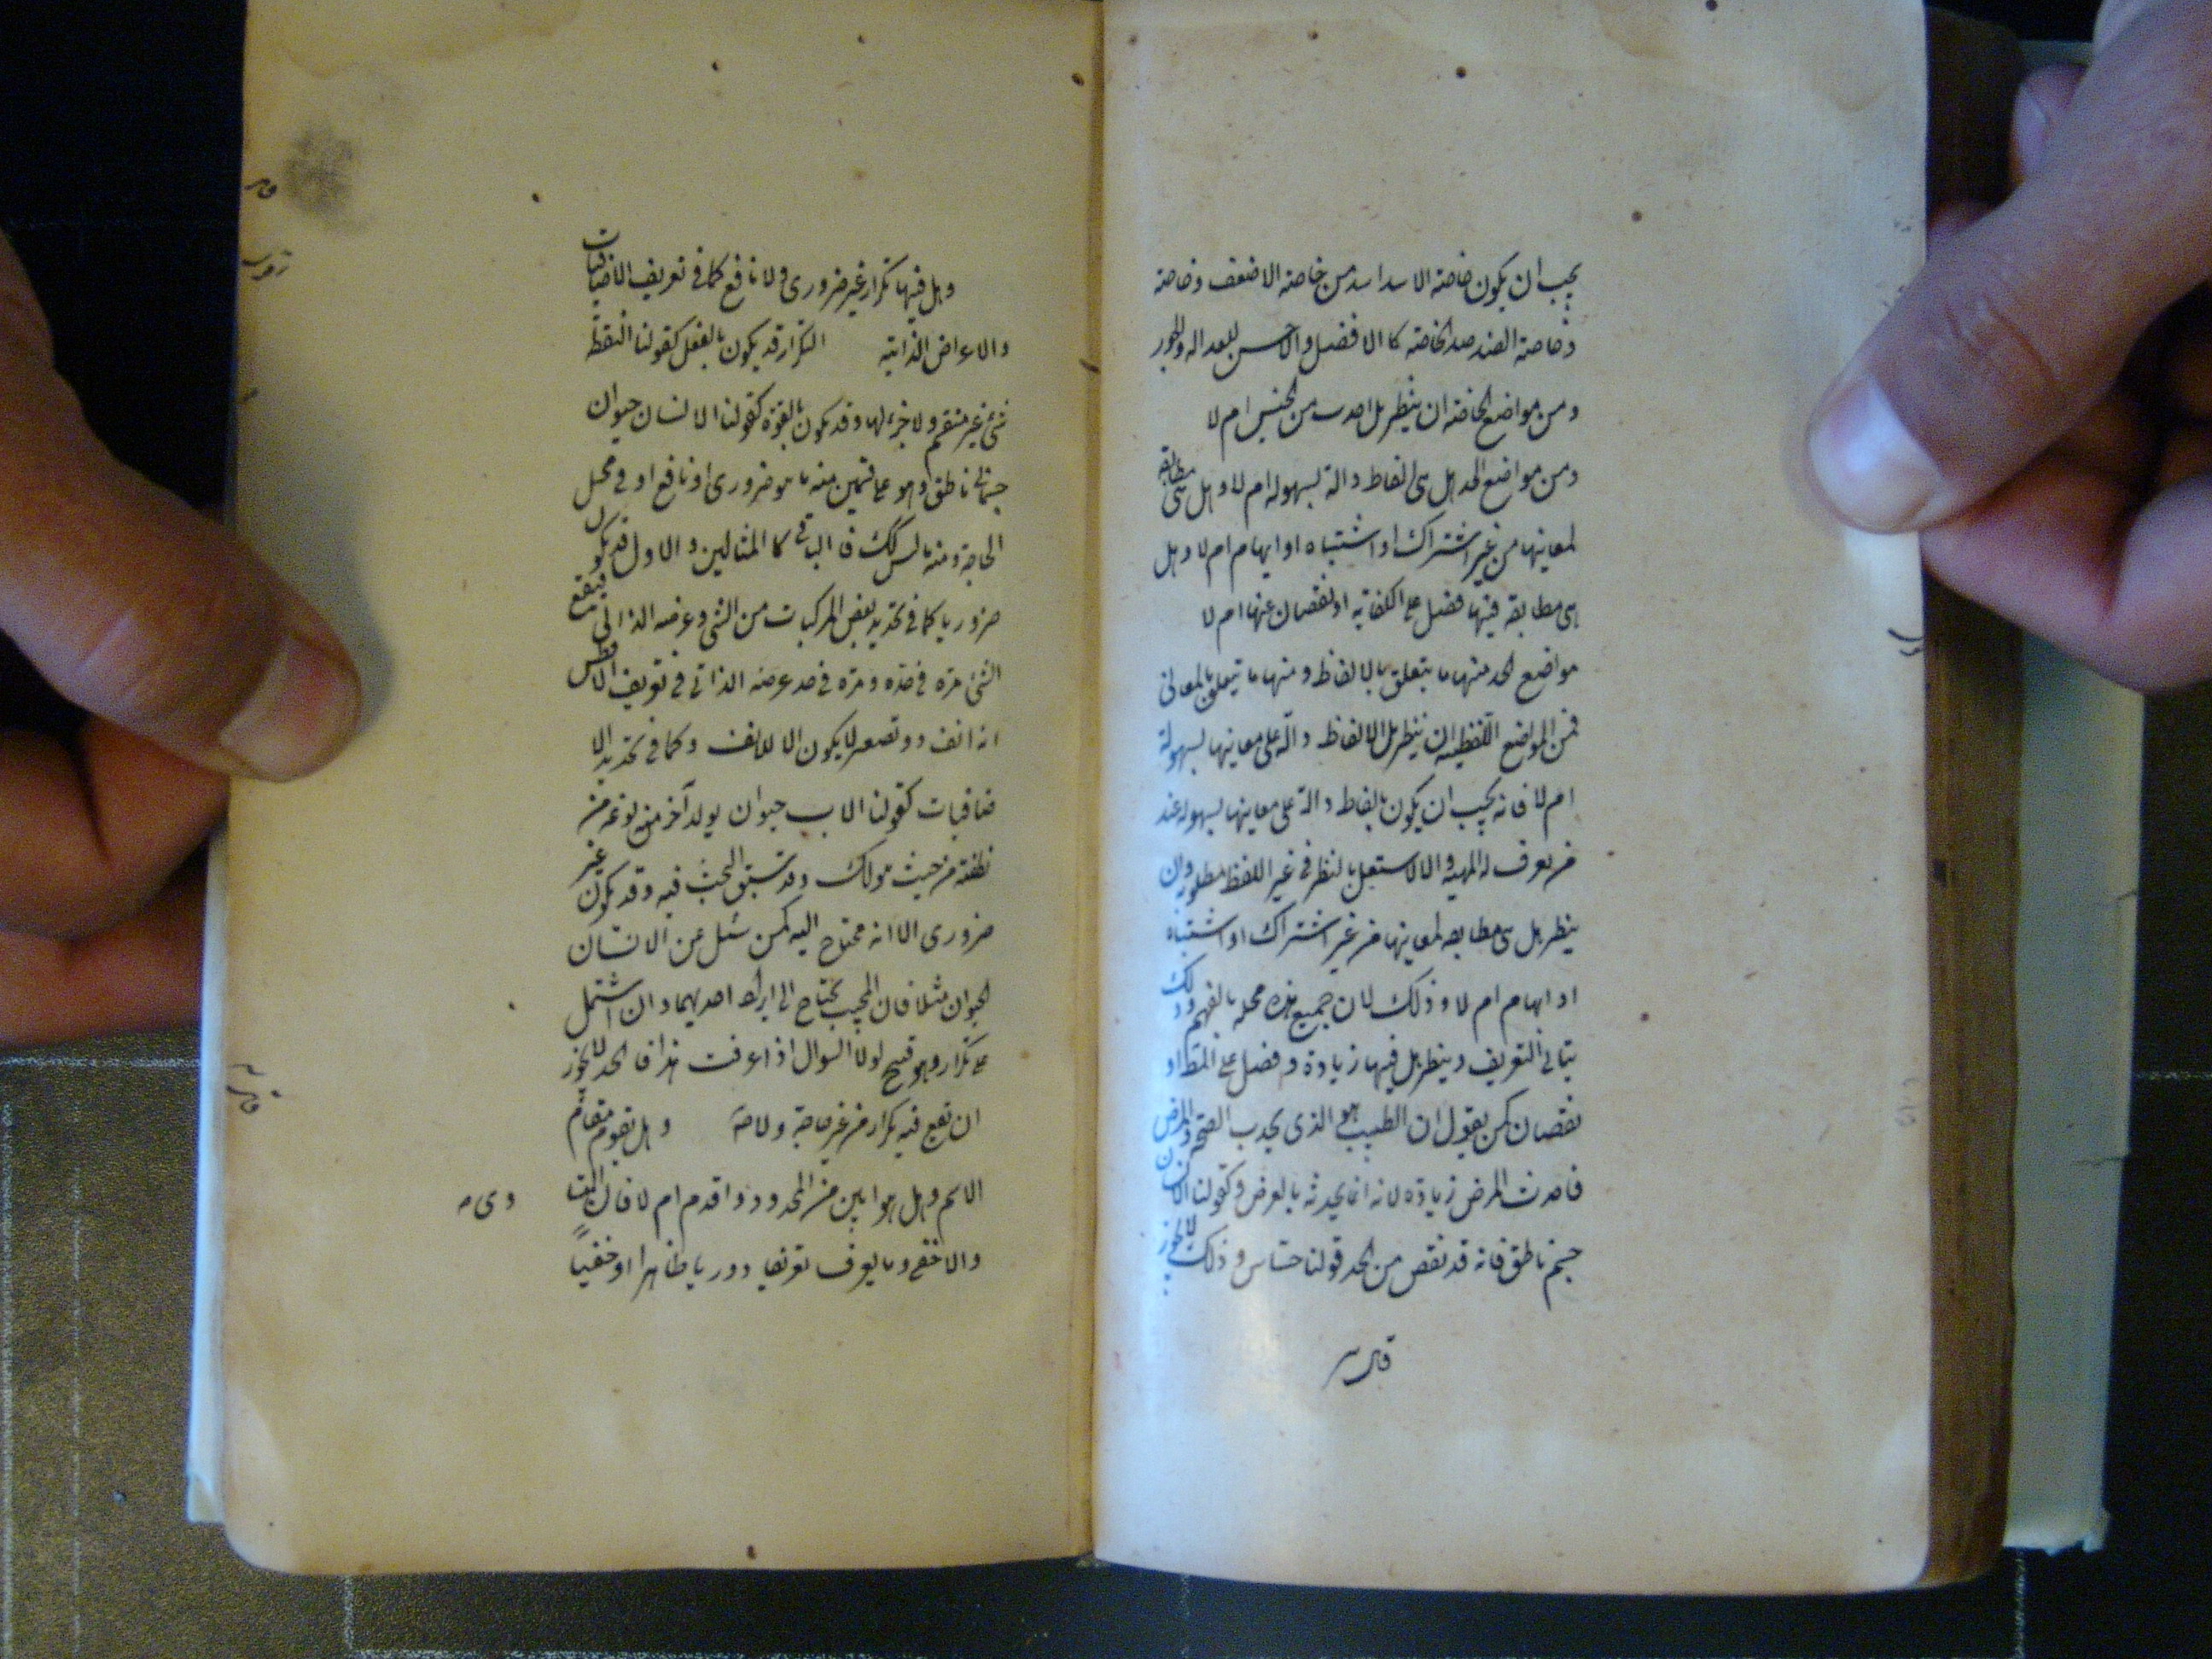 يجب ان يكون خاصة الاشد اشد من خاصة الاضعف وخاصة
وخاصة الضد ضد الخاصة كالافضل والاخس للعدالة والجور
ومن مواضع الخاصة ان ينظر هل اخذت من الجنس ام لا
ومن مواضع الحد هل هى الفاظ دالة بسهولة ام لا وهل هى مطابقة
لمعانيها من غير اشتراك او اشتباه او ايهام ام لا وهل
هى مطابقة فيها فضل على الكفاية او نقصان عنها ام لا
مواضع الحد منها ما يتعلق بالالفاظ ومنها ما يتعلق بالمعانى
فمن المواضع اللفظية ان ينظر هل الالفاظ دالة على معانيها بسهولة
ام لا فانه يجب ان يكون بالفاظ دالة على معانيها بسهولة عند
من يعرف له المهية والا لاشتغل بالنظر فى غير اللفظ مطلوبه وان
ينظر هل هى مطابقة لمعانيها من غير اشتراك او اشتباه
او ايهام ام لا وذلك لان جميع هذه مخلة بالفهم وذلك
ينافى التعريف وينظر هل فيها زيادة وفضل على المقصد او
نقصان كمن يقول ان الطبيب هو الذى يحدث الصحة والمرض
فاحدث المرض زيادة لانه انما يحدثه بالعرض وكقولنا الانسان
جسم ناطق فانه قد نقص من الحد قولنا حساس وذلك لا يجوز
وهل فيها تكرار غير ضرورى ولا نافع كما فى تعريف الاضافيات
والاعراض الذاتية التكرار قد يكون بالفعل كقولنا النقطة
شئ غير منقسم ولا جزء لها وقد يكون بالقوة كقولنا الانسان حيوان
جسمانى ناطق وهو على قسمين منه ما هو ضرورى او نافع او فى محل
الحاجة ومنه ما ليس كذلك فالباقى كالمثالين والاول قد يكون
ضروريا كما فى تحديد بعض المركبات من الشئ وعرضه الذاتى فيقع
الشئ مرة فى حده ومرة فى حد عرضه الذاتى فى تعريف الافطس
انه انف ذو تقعير لا يكون الا للانف وكما فى تحديد الا
ضافيات كقولنا الاب حيوان يولد آخر من نوعه من
نطفته من حيث هو كذلك وقد سبق البحث فيه وقد يكون غير
ضرورى الا انه محتاج اليه كمن سئل عن الانسان
الحيوان مثلا فان المجيب يحتاج الى ايراد احديهما وان اشتمل
على تكرار وهو قبيح لولا السوال اذا عرفت هذا فالحد لا يجوز
ان يقع فيه تكرار من غير حاجة ولا وهل يقوم مقام
الاسم وهل هو ابين من المحدود واقدم ام لا فان
والاخفى وما يعرف تعريفا دوريا ظاهرا او خفيا